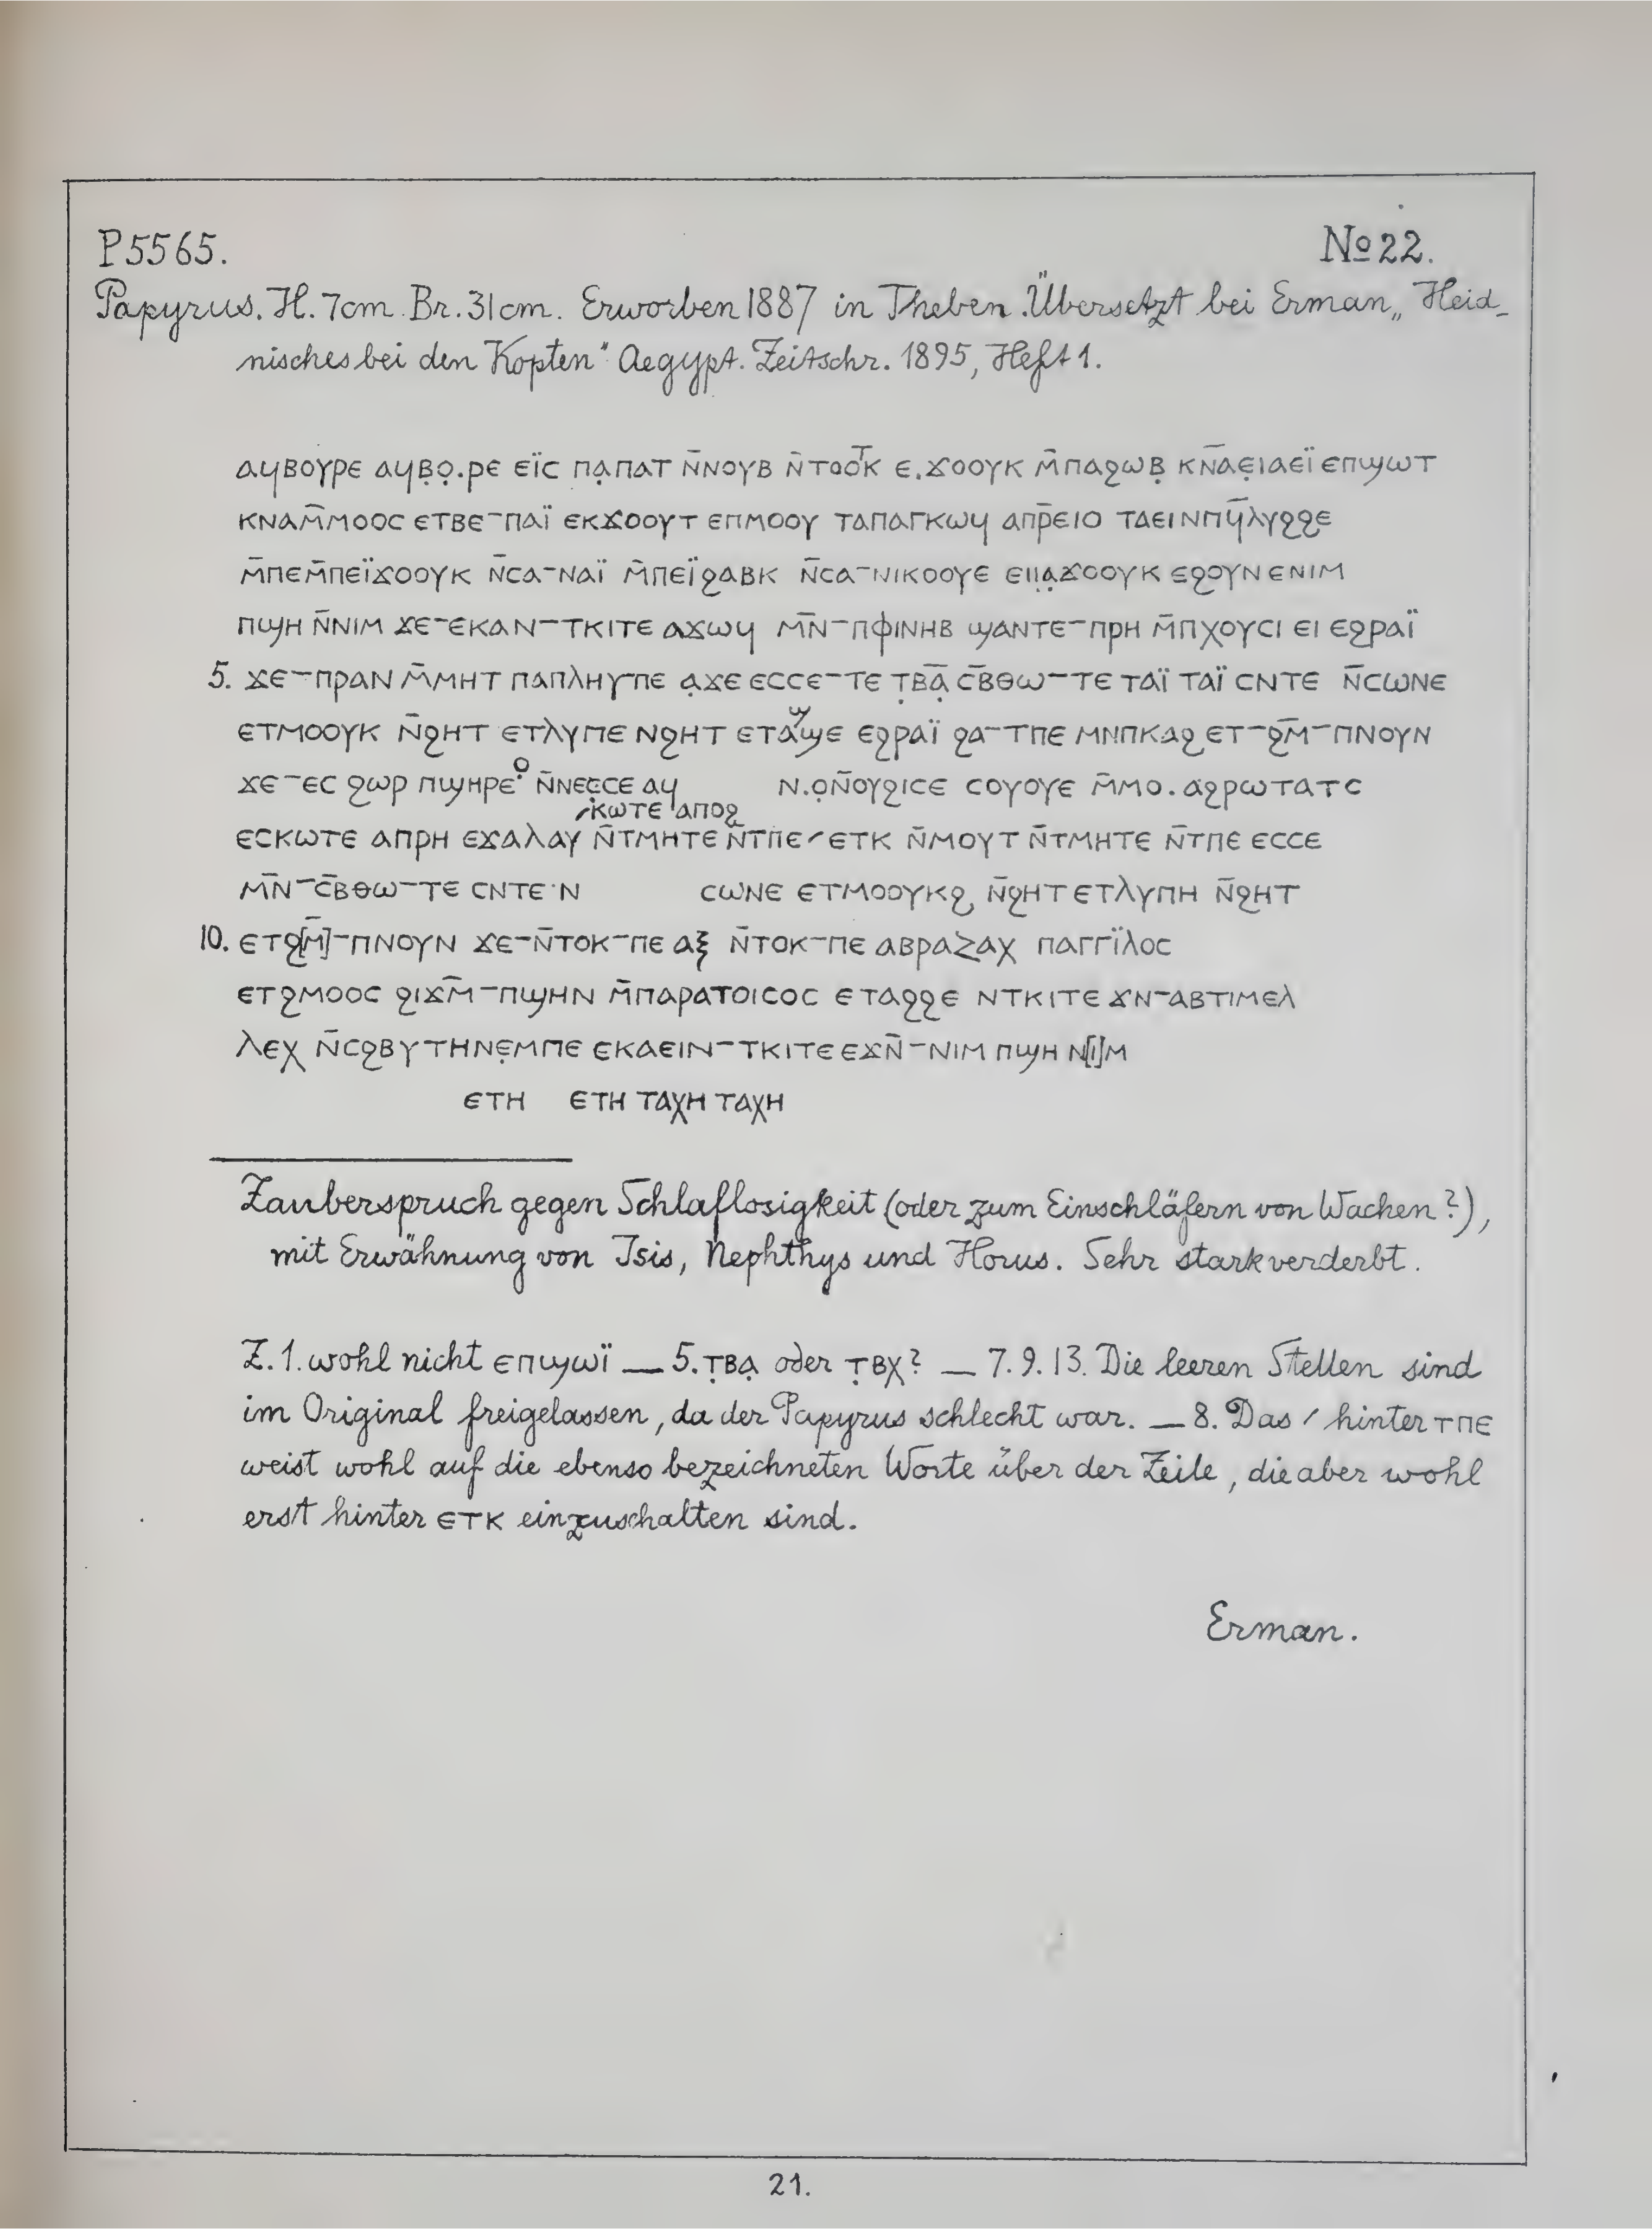 P5565. No 22.
Papyrus. H. 7cm. Br. 31cm. Erworben 1887 in Theben. Übersetzt bei Erman „Heid-
nisches bei den Kopten“ Aegypt. Zeitschr. 1895, Heft 1.
ⲁϥⲃⲟⲩⲣⲉ ⲁϥⲃ̣ⲟ̣.ⲣⲉ ⲉⲓ̈ⲥ ⲡⲁ̣ⲡⲁⲧ ⲛ̄ⲛⲟⲩⲃ ⲛ̄ⲧⲟⲟⲧ̄ⲕ ⲉ.ϫⲟⲟⲩⲕ ⲙ̄ⲡⲁϩⲱⲃ̣ ⲕⲛ̄ⲁⲉ̣ⲓⲁⲉⲓ̈ ⲉⲡϣⲱⲧ
ⲕⲛⲁⲙ̄ⲙⲟⲟⲥ ⲉⲧⲃⲉ-ⲡⲁⲓ̈ ⲉⲕϫⲟⲟⲩⲧ ⲉⲡⲙⲟⲟⲩ ⲧⲁⲡⲁⲅⲕⲱϥ ⲁⲡⲣ̄ⲉⲓⲟ ⲧⲁⲉⲓⲛⲡϥ̄ⲗⲩϩϩⲉ
ⲙ̄ⲡⲉⲙ̄ⲡⲉⲓ̈ϫⲟⲟⲩⲕ ⲛ̄ⲥⲁ-ⲛⲁⲓ̈ ⲙ̄ⲡⲉⲓ̈ϩⲁⲃⲕ ⲛ̄ⲥⲁ-ⲛⲓⲕⲟⲟⲩⲉ ⲉⲓⲓⲁ̣ϫⲟⲟⲩⲕ ⲉϩⲟⲩⲛ ⲉⲛⲓⲙ
ⲡϣⲏ ⲛ̄ⲛⲓⲙ ϫⲉ-ⲉⲕⲁⲛ-ⲧⲕⲓⲧⲉ ⲁϫⲱϥ ⲙ̄ⲛ-ⲡⲫⲓⲛⲏⲃ ϣⲁⲛⲧⲉ-ⲡⲣⲏ ⲙ̄ⲡⲭⲟⲩⲥⲓ ⲉⲓ ⲉϩⲣⲁⲓ̈
5. ϫⲉ-ⲡⲣⲁⲛ ⲙ̄ⲙⲏⲧ ⲡⲁⲡⲗⲏⲩ-ⲡⲉ ⲁ̣ϫⲉ ⲉⲥⲥⲉ-ⲧⲉ ⲧ̣ⲃⲁ̣̄ ⲥ̄ⲃⲑⲱ-ⲧⲉ ⲧⲁⲓ̈ ⲧⲁⲓ̈ ⲥⲛⲧⲉ ⲛ̄ⲥⲱⲛⲉ
ⲉⲧⲙⲟⲟⲩⲕ ⲛ̄ϩⲏⲧ ⲉⲧⲗⲩⲡⲉ ⲛϩⲏⲧ ⲉⲧⲁϣϣⲉ ⲉϩⲣⲁⲓ̈ ϩⲁ-ⲧⲡⲉ ⲙⲛⲡⲕⲁϩ ⲉⲧ-ϩⲙ̄-ⲡⲛⲟⲩⲛ
ϫⲉ-ⲉⲥ ϩⲱⲣ ⲡϣⲏⲣⲉⲟ ⲛ̄ⲛⲉⲥ̣ⲥⲉ ⲁϥ ⲛ.ⲟ̣ⲛ̄ⲟⲩϩⲓⲥⲉ ⲥⲟⲩⲟⲩⲉ ⲙ̄ⲙⲟ.ⲁϩⲣⲱⲧⲁⲧⲥ
⸍ⲕⲱⲧⲉ ⲁⲡⲟϩ
ⲉⲥⲕⲱⲧⲉ ⲁⲡⲣⲏ ⲉϫⲁⲗⲁⲩ ⲛ̄ⲧⲙⲏⲧⲉ ⲛ̄ⲧⲡⲉ⸍ⲉⲧⲕ ⲛ̄ⲙⲟⲩⲧ ⲛ̄ⲧⲙⲏⲧⲉ ⲛ̄ⲧⲡⲉ ⲉⲥⲥⲉ
ⲙ̄ⲛ-ⲥ̄ⲃⲑⲱ-ⲧⲉ ⲥⲛⲧⲉ·ⲛ ⲥⲱⲛⲉ ⲉⲧⲙⲟⲟⲩⲕϩ ⲛ̄ϩⲏⲧ ⲉⲧⲗⲩⲡⲏ ⲛ̄ϩⲏⲧ
10. ⲉⲧϩ[ⲙ̄]-ⲡⲛⲟⲩⲛ ϫⲉ-ⲛ̄ⲧⲟⲕ-ⲡⲉ ⲁⲝ ⲛ̄ⲧⲟⲕ-ⲡⲉ ⲁⲃⲣⲁⲍⲁⲭ ⲡⲁⲅⲅⲓ̈ⲗⲟⲥ
ⲉⲧϩⲙⲟⲟⲥ ϩⲓϫⲙ̄-ⲡϣⲏⲛ ⲙ̄ⲡⲁⲣⲁⲧⲟⲓⲥⲟⲥ ⲉⲧⲁϩϩⲉ ⲛⲧⲕⲓⲧⲉ ϫⲛ-ⲁⲃⲧⲓⲙⲉⲗ
ⲗⲉⲭ ⲛ̄ⲥϩⲃⲩⲧⲏⲛⲉ̣ⲙⲡⲉ ⲉⲕⲁⲉⲓⲛ-ⲧⲕⲓⲧⲉ ⲉϫⲛ̄-ⲛⲓⲙ ⲡϣⲏ ⲛ[ⲓ]ⲙ
ⲉⲧⲏ ⲉⲧⲏ ⲧⲁⲭⲏ ⲧⲁⲭⲏ
Zauberspruch gegen Schlaflosigkeit (oder zum Einschläfern von Wachen?),
mit Erwähnung von Isis, Nephthys und Horus. Sehr stark verderbt.
Z. 1. wohl nicht ⲉⲡϣⲱⲓ̈ — 5. ⲧ̣ⲃⲁ̣ oder ⲧ̣ⲃⲭ? — 7. 9. 13. Die leeren Stellen sind
im Original freigelassen, da der Papyrus schlecht war. — 8. Das ⸍ hinter ⲧⲡⲉ
weist wohl auf die ebenso bezeichneten Worte über der Zeile, die aber wohl
erst hinter ⲉⲧⲕ einzuschalten sind.
Erman.
21.